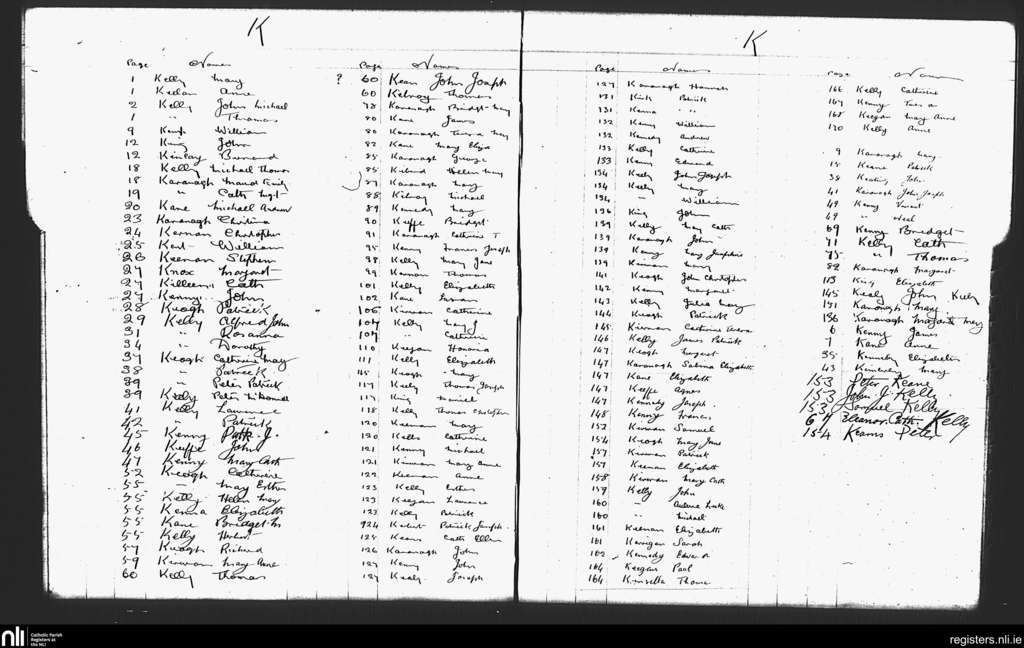 K
Page Names
1 Kelly Mary
1 Keelan Anne
2 Kelly John Michael
1 " Thomas
9 Kemp William
12 King John
12 Kinlay Bernard
18 Kelly Michael Thomas
18 Kavanagh Maud Emily
19 " Cath
20 Kane Michael Andrew
23 Kavanagh Christina
24 Kernan Christopher
25 Kent William
26 Keenan Stephen
27 Knox Margaret
27 Killeen Cath
27 Kenny John
28 Keogh Patrick
29 Kelly Alfred John
31 " Rosanna
34 " Dorothy
37 Keogh Catherine Mary
38 " Patrick
39 " Peter Patrick
39 Kealy Peter
41 Kelly Laurence
42 " Patrick
45 Kenny Patk J.
46 Keeffe John
47 Kenny Mary Cath
52 Keogh Catherine
55 " Mary Esther
55 Kelly Helen Mary
55 Kenna Elizabeth
55 Kane Bridget M
55 Kelly
57 Keogh Richard
59 Kirwan Mary Anne
60 Kelly Thomas
Page Names
? 60 Kean John Joseph
60 Kilroy Thomas
78 Kavanagh Bridget Mary
80 Kane James
80 Kavanagh Teresa Mary
82 Kane Mary Eliza
85 Kavanagh George
85 Helen Mary
87 Kavanagh Mary
88 Kilroy Michael
89 Kennedy Mary
90 Keeffe Bridget
91 Kavanagh Catherine T
95 Kenny Francis Joseph
98 Kelly Mary Jane
99 Kernan Thomas
101 Kelly Elizabeth
102 Kane
106 Kiernan Catherine
107 Kelly Mary J
107 " Catherine
110 Keegan Honoria
111 Kelly Elizabeth
115 Keogh Mary
117 Kealy Thomas Joseph
117 King Daniel
118 Kelly Thomas Christopher
120 Keenan Mary
120 Kells Catherine
121 Kenny Michael
121 Kinnan Mary Anne
122 Keenan Anne
123 Kelly Esther
123 Keegan Laurence
123 Kelly Patrick
924 Patrick Joseph
125 Kearns Cath Ellen
126 Kavanagh John
127 Kenny John
127 Kealy Joseph
K
Page Names
127 Kavanagh Hannah
131 Kirk Patrick
131 Kenna " "
132 Kenny William
132 Kennedy Andrew
133 Kelly Catherine
133 Kenny Edmund
134 Kealy John Joseph
134 Kelly Mary
134 " William
136 King John
139 Kelly Mary Cath
139 Kavanagh John
139 Kenny Mary Josephine
139 Kiernan Mary
141 Keogh John Christopher
142 Kenny Margaret
143 Kelly Julia Mary
144 Keogh Patrick
145 Kiernan Catherine
146 Kelly James Patrick
147 Keogh Margaret
147 Kavanagh Selina Elizabeth
147 Kane Elizabeth
147 Keeffe Agnes
147 Kennedy Joseph
148 Kenny Francis
152 Kiernan Samuel
154 Keogh Mary Jane
157 Kiernan Patrick
157 Keenan Elizabeth
158 Kiernan Mary Cath
159 Kelly John
160 " Luke
160 " Michael
161 Keenan Elizabeth
161 Kerrigan Sarah
162 Kennedy Edward
164 Keegan Paul
164 Kinsella Thomas
Page Names
166 Kelly Catherine
167 Kenny Teresa
168 Keegan Mary Anne
170 Kelly Anne
9 Kavanagh Mary
15 Keane Patrick
38 Keating John
41 Kavanagh John Joseph
49 Kenny Vincent
49 " Noel
69 Kenny Bridget
71 Kelly Cath
75 " Thomas
82 Kavanagh Margaret
113 King Elizabeth
145 Kealy John Kiely
151 Kavanagh Mary
136 Kavanagh Marjorie Mary
6 Kenny James
7 Kane Anne
35 Kimberley Elizabeth
43 Kimberley Mary
153 Peter Keane
153 John J. Kelly
153 Samuel Kelly
67 Eleanor Cath. Kelly
154 Kearns Peter
nli Catholic Parish Registers at the NLI
registers.nli.ie